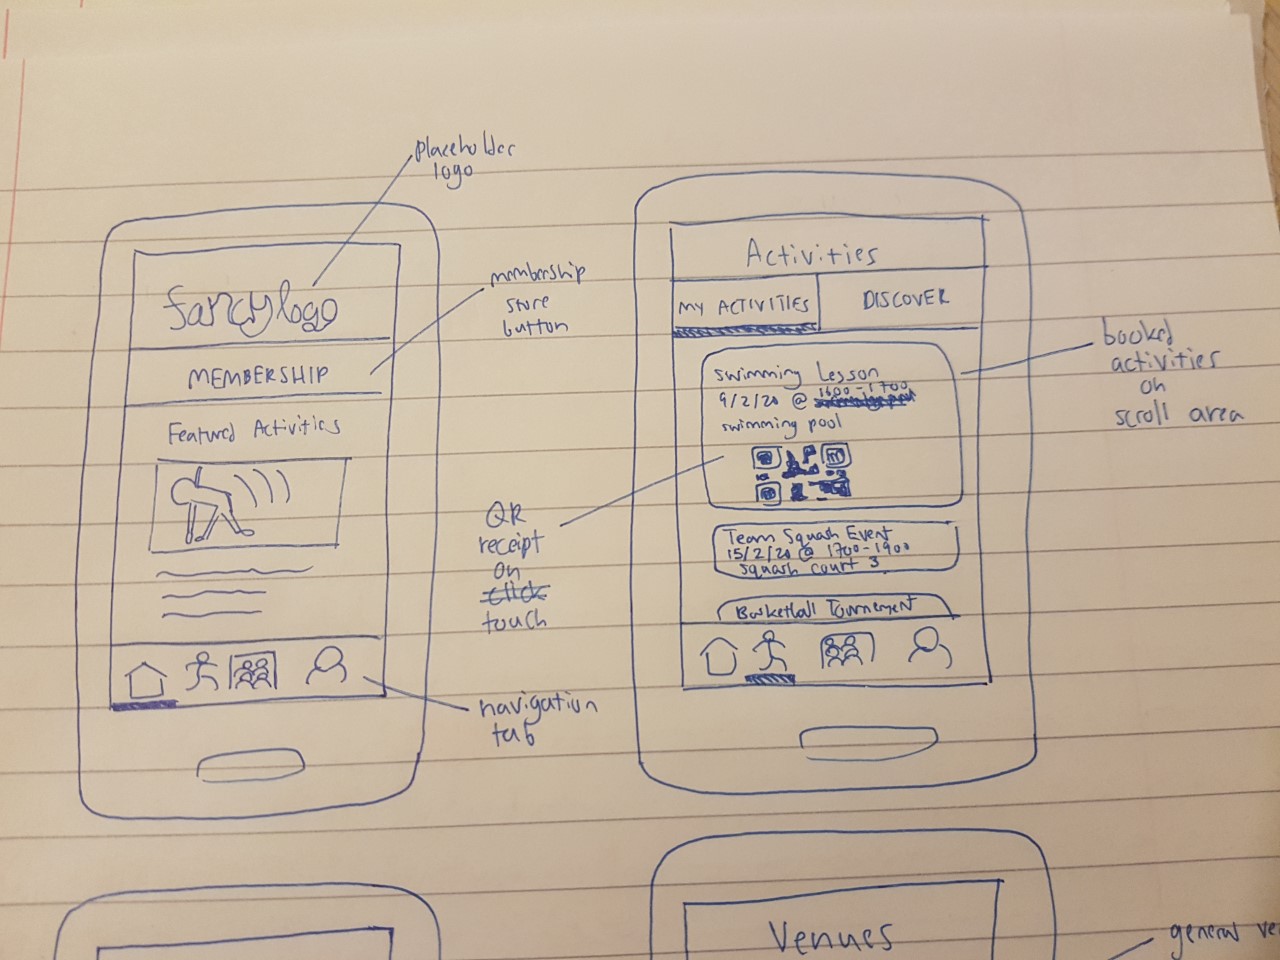 placeholder
logo
fancylogo
membership
store
button
MEMBERSHIP
Featured Activities
navigation
tab
Activities
MY ACTIVITIES
DISCOVER
booked
activities
on
scroll area
swimming Lesson
9/2/20 @ 1600-1700
swimming pool
QR
receipt
on
click
touch
Team Squash Event
15/2/20 @ 1700-1900
squash court 3
Basketball Tournement
Venues
general